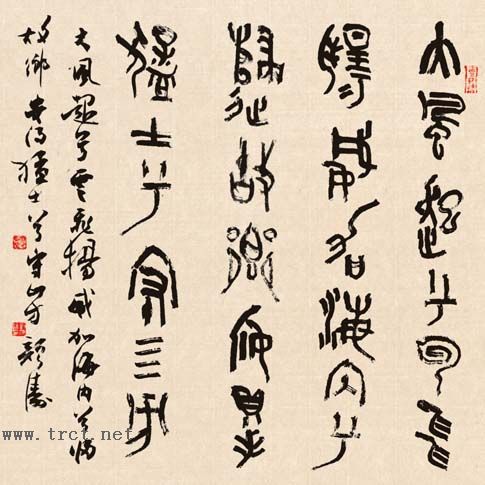 大風起兮云飛
揚威加海内兮
歸故鄉安得
猛士兮守四方
大風起兮雲飛揚威加海内兮歸
故鄉安得猛士兮守四方 顏濤
www.trct.net